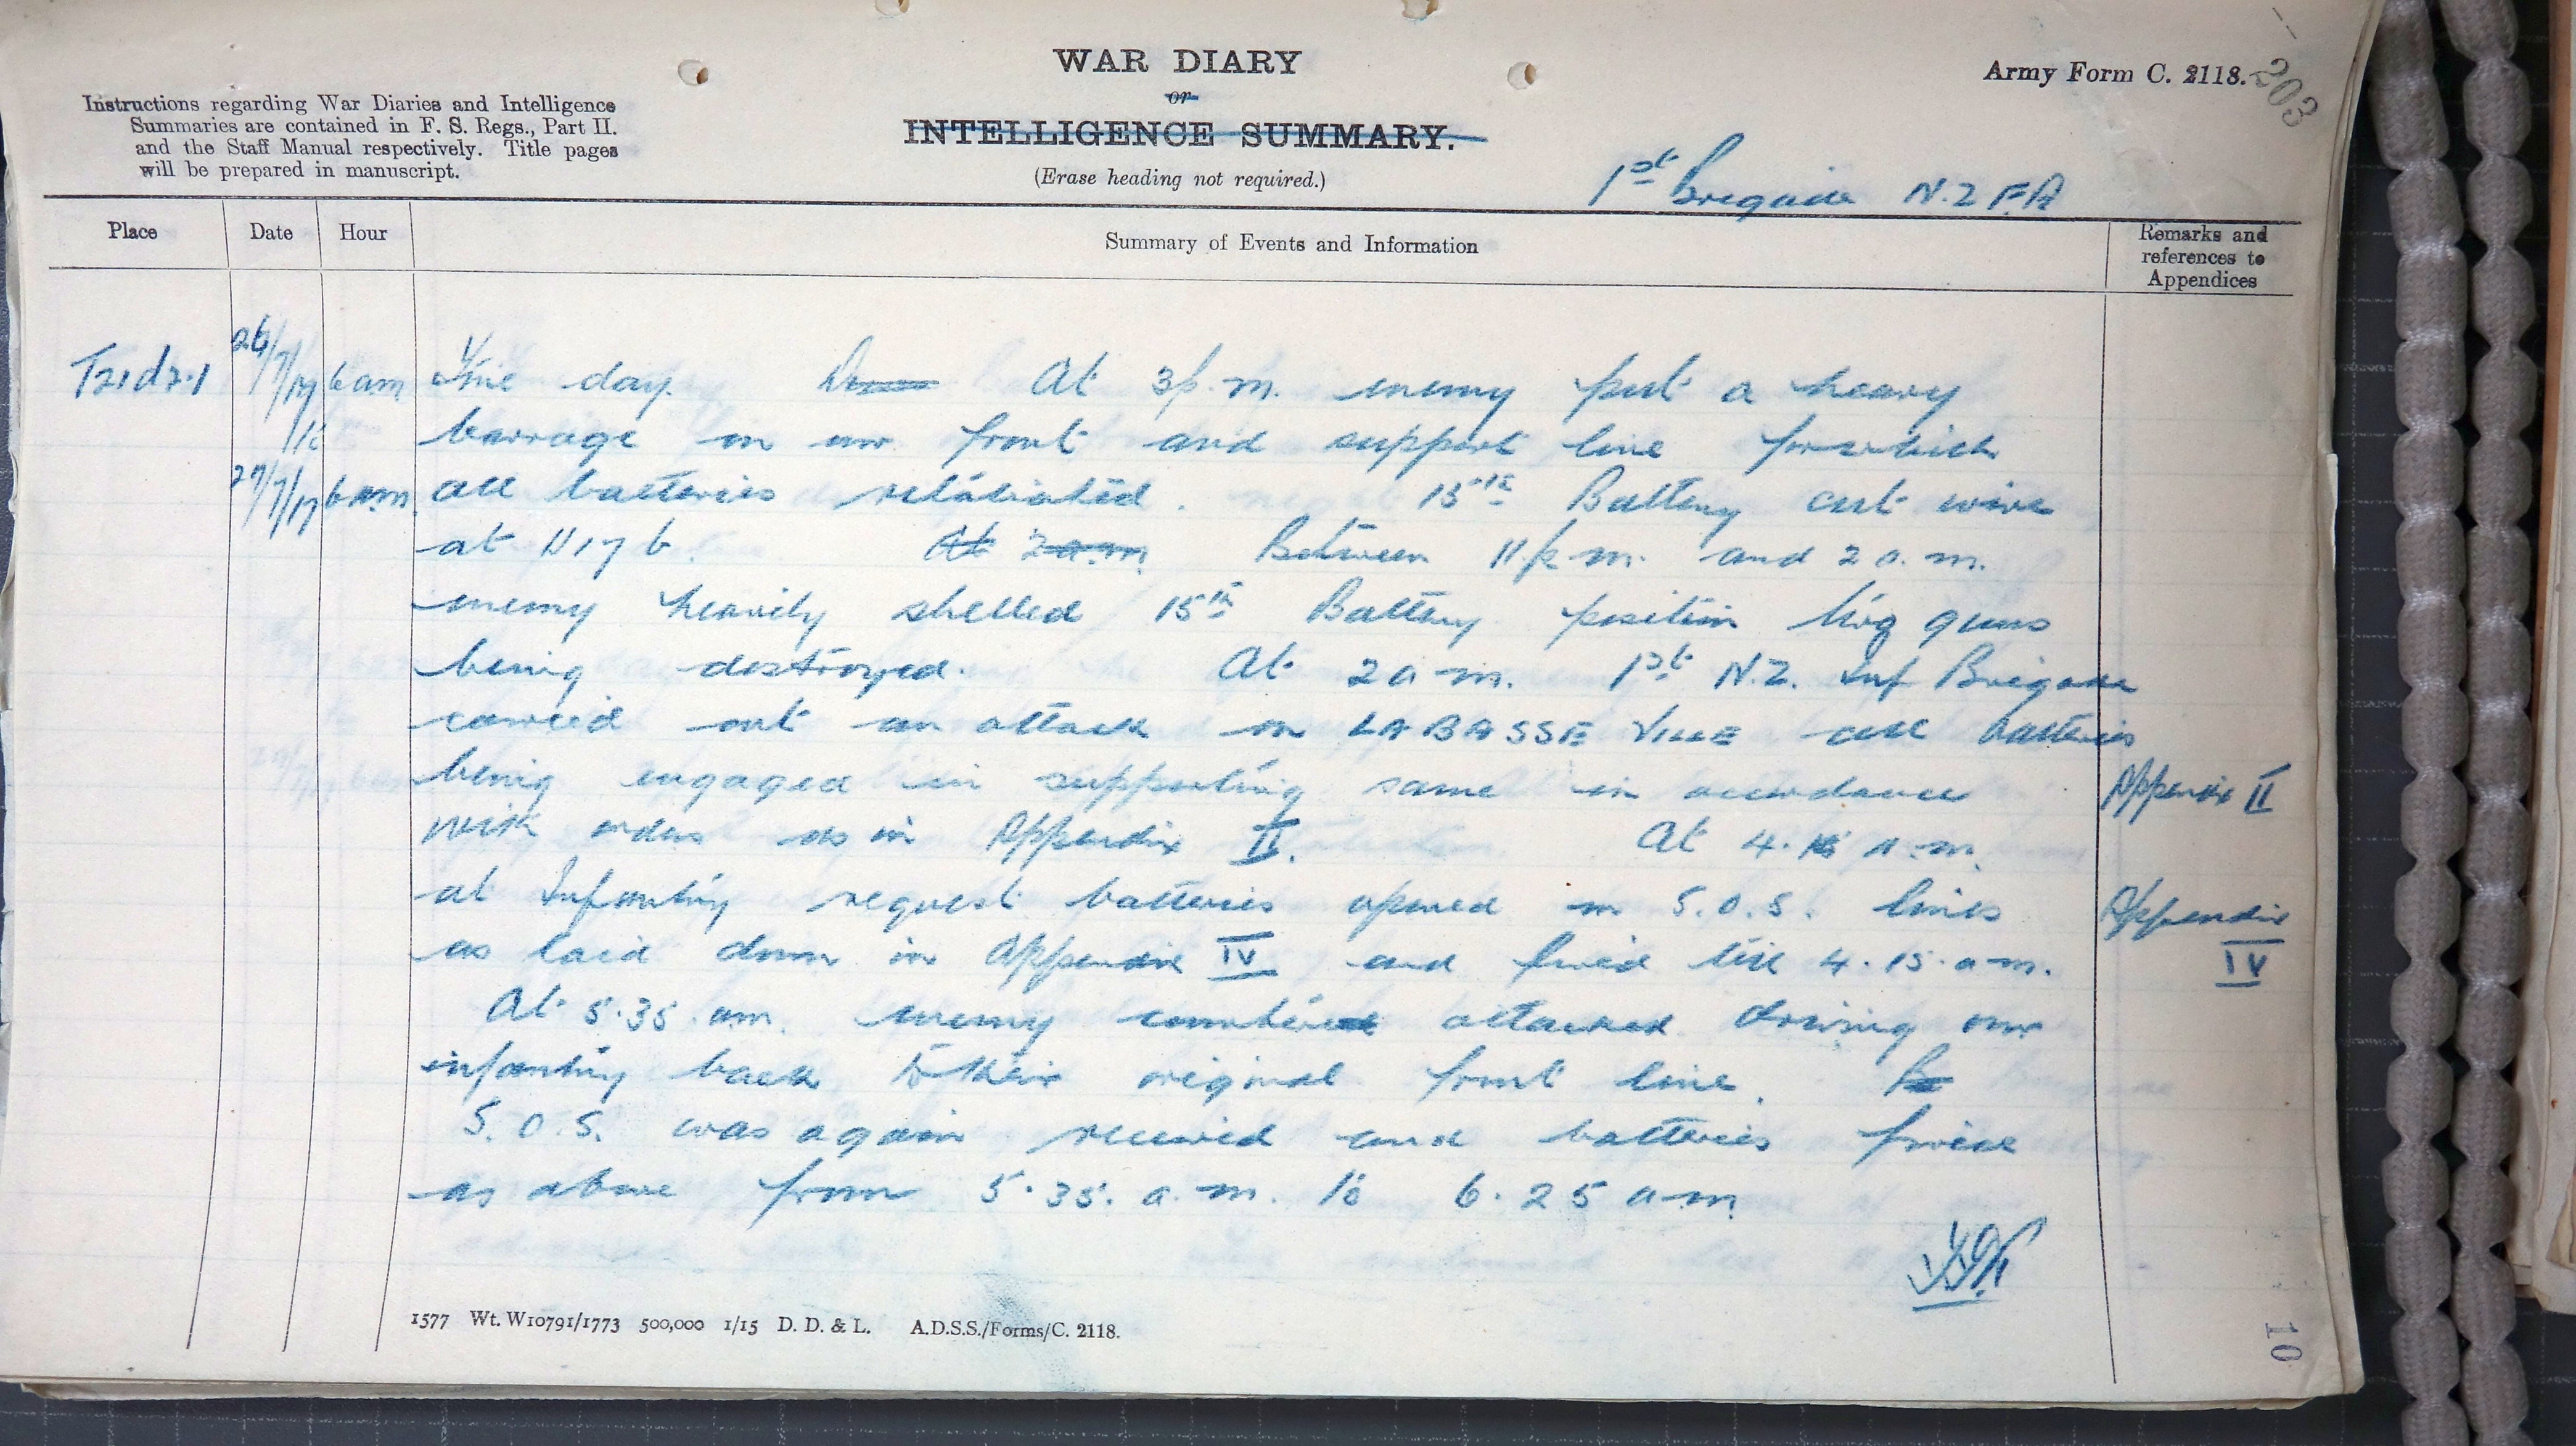 WAR DIARY
or
INTELLIGENCE SUMMARY.
(Erase heading not required.)
Army Form C. 2118.
203
Instructions regarding War Diaries and Intelligence
Summaries are contained in F. S. Regs., Part II.
and the Staff Manual respectively. Title pages
will be prepared in manuscript.
1st Brigade N.Z F.A
Place Date Hour Summary of Events and Information Remarks and references to Appendices
T21d2.1 26/7/17 6am Fine day. At 3p.m. enemy put a heavy
to barrage on our front and support line for which
27/7/17 6am all batteries retaliated. 15th Battery cut wire
at U17b. At 2a.m Between 11 p.m. and 2 a.m.
enemy heavily shelled 15th Battery position two guns
being destroyed. At 2 a.m. 1st N.Z. Inf Brigade
carried out an attack on LA BASSE VILLE all batteries
being engaged in supporting same in accordance Appendix II
with orders as in Appendix II. At 4. a.m.
at Infantry request batteries opened on S.O.S. lines Appendix
as laid down in Appendix IV and fired till 4.15.a.m. IV
At 5.35.am. enemy counter attacked driving our
infantry back to their original front line.
S.O.S. was again received and batteries fired
as above from 5.35.a.m. to 6.25 a.m
1577 Wt. W10791/1773 500,000 1/15 D. D. & L. A.D.S.S./Forms/C. 2118.
10